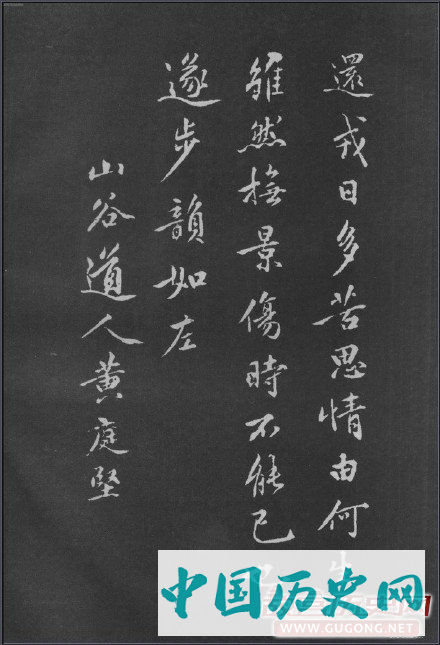 還戎日多苦思情由何
雖然撫景傷時不能已
遂步韻如左
山谷道人黃庭堅
中国历史网
WWW.GUGONG.NET